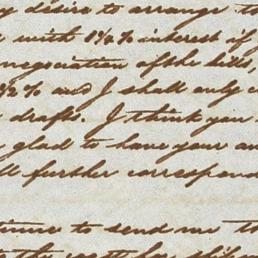 desire to arrange
with 1¼% interest if
negociation of the bills,
½% and I shall only
drafts. I think your
glad to have your
further correspond
to send me
the